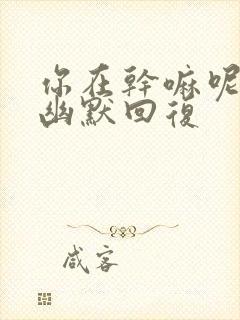 你在幹嘛呢
幽默回復
咸客